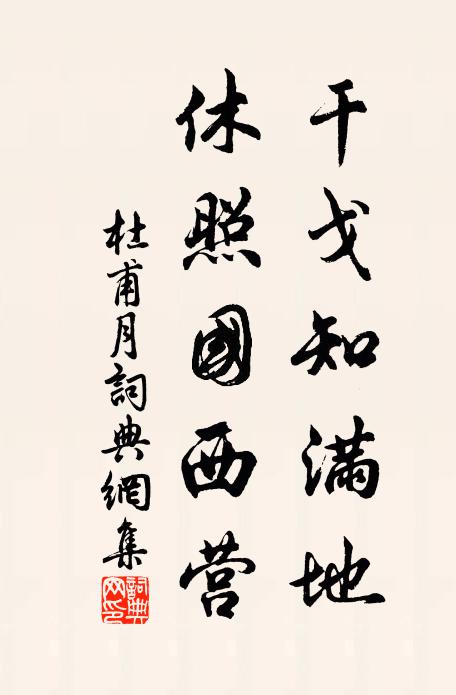 干戈知满地
休照國西营
杜甫月詞典網集
詞典网印